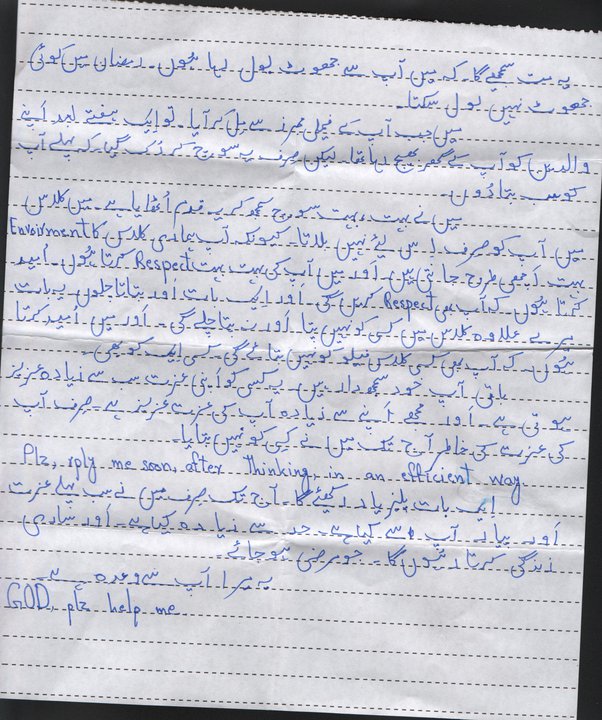 یہ مت سمجھئے گا۔ کہ میں آپ سے جھوٹ بول رہا ہوں۔ رمضان میں کوئی
جھوٹ نہیں بول سکتا۔
میں جب آپ کے فیملی ممبرز سے مل کر آیا۔ تو ایک ہفتے بعد اپنے
والدین کو آپ کے گھر بھیج رہا تھا۔ لیکن صرف یہ سوچ کر رُک گیا۔ کہ پہلے آپ
کو سب بتا دُوں۔
میں نے بہت، بہت سوچ سمجھ کر یہ قدم اُٹھایا ہے۔ میں کلاس
میں آپ کو صرف اِس لیئے نہیں بلاتا۔ کیونکہ آپ ہماری کلاس کا Envoirment
بہت اَچھی طرح جانتی ہیں۔ اَور میں آپ کی بہت بہت Respect کرتا ہُوں۔ اُمید
کرتا ہُوں۔ کہ آپ بھی Respect کریں گی۔ اَور ایک بات اَور بتاتا چلوں۔ یہ بات
میرے علاوہ کلاس میں کسی کو نہیں پتا۔ اَور نہ پتا چلے گی۔ اَور میں اُمید کرتا
ہُوں۔ کہ آپ بھی کسی کلاس فیلو کو نہیں بتائے گی۔ کسی ایک کو بھی۔
باقی آپ خود سمجھدار ہیں۔ ہر کسی کو اپنی عزت سب سے زیادہ عزیز
ہوتی ہے۔ اَور مجھے اَپنے سے زیادہ آپ کی عزت عزیز ہے۔ صرف آپ
کی عزت کی خاطر آج تک میں نے کسی کو نہیں بتایا۔
Plz, rply me soon, after thinking, in an efficient way
ایک بات پلیز یاد رکھیئے گا۔ آج تک صرف میں نے سب پہلے عزت
اَور پیار آپ سے کیا ہے۔ حد سے زیادہ کیا ہے۔ اَور ساری
زندگی کرتا رہُوں گا۔ جو مرضی ہو جائے۔
یہ میرا آپ سے وعدہ ہے۔
GOD, plz help me